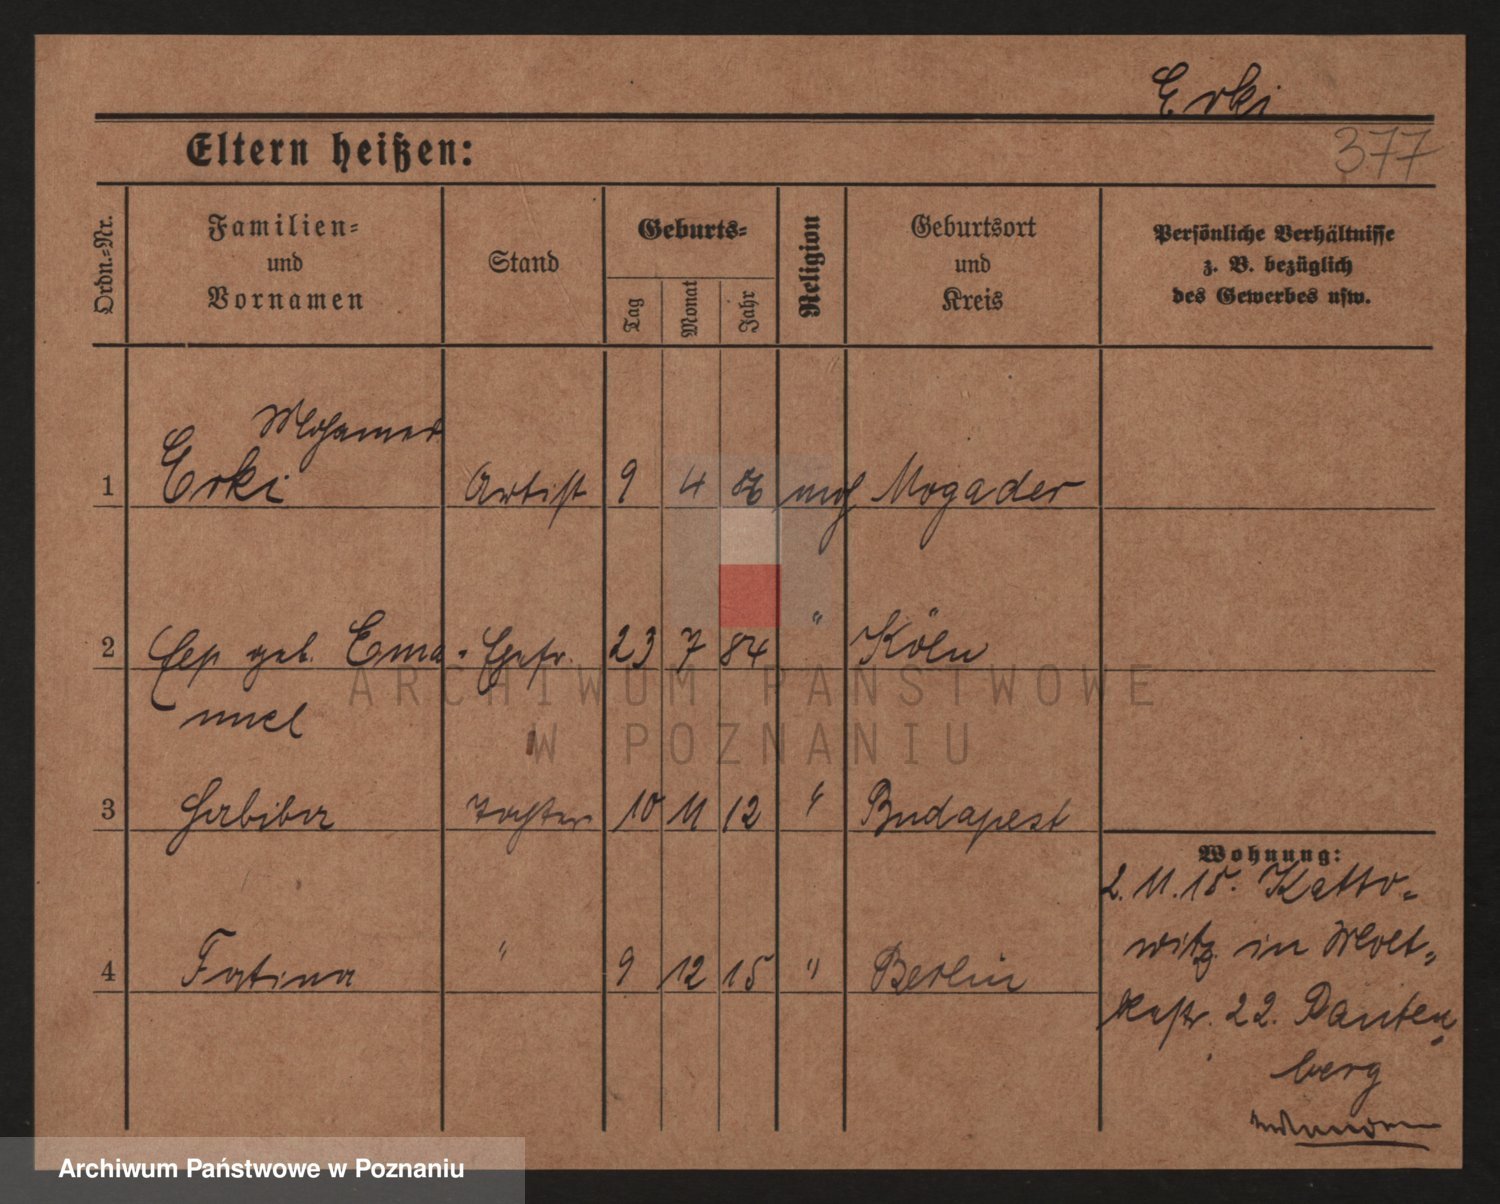 Erki
377
Eltern heißen:
Ordn.-Nr.
Familien-
und
Vornamen
Stand
Geburts-
Tag
Monat
Jahr
Religion
Geburtsort
und
Kreis
Persönliche Verhältnisse
z. B. bezüglich
des Gewerbes usw.
Mohamed
1 Erki Artist 9 4 86 moh Mogador
2 geb. Ema- Ehefr. 23 7 84 " Köln
nuel
3 Habiba Tochter 10 11 12 " Budapest
Wohnung:
2. 11. 15. Katto-
witz in Molt-
4 Fatima " 9 12 15 " Berlin
kestr. 22. Panten-
berg
ARCHIWUM PAŃSTWOWE
W POZNANIU
Archiwum Państwowe w Poznaniu